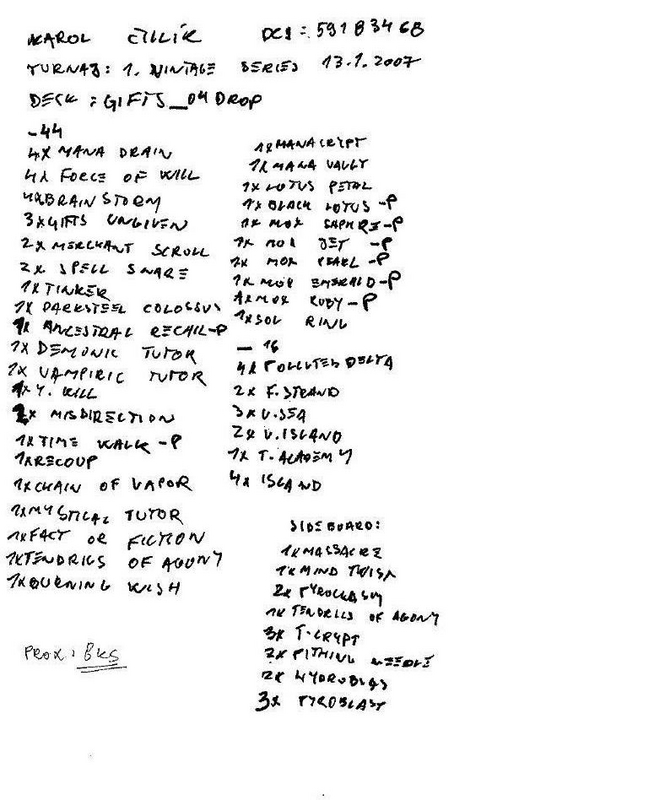 KAROL CILLÍK DCI: 59183468
TURNAJ: 1. VINTAGE SERIES 13.1.2007
DECK: GIFTS_04DROP
-44
4X MANA DRAIN
4X FORCE OF WILL
4XBRAINSTORM
3XGIFTS UNGIVEN
2X MERCHANT SCROLL
2X SPELL SNARE
1XTINKER
1X DARKSTEEL COLOSSUS
1X ANCESTRAL RECALL-P
1X DEMONIC TUTOR
1X VAMPIRIC TUTOR
1XY. WILL
2X MISDIRECTION
1XTIME WALK -P
1XRECOUP
1XCHAIN OF VAPOR
1XMYSTICAL TUTOR
1XFACT OR FICTION
1XTENDRILS OF AGONY
1XBURNING WISH
PROX: 8KS
1XMANACRYPT
1X MANA VAULT
1X LOTUS PETAL
1XBLACK LOTUS -P
1X MOX SAPHIRE-P
1X MOX JET -P
1X MOX PEARL -P
1X MOX EMERALD-P
1XMOX RUBY-P
1XSOL RING
- 16
4X POLLUTED DELTA
2X F.STRAND
3X U.SEA
2X V.ISLAND
1X T.ACADEMY
4X ISLAND
SIDEBOARD:
1XMASSACRE
1XMIND TWIST
2X PYROCLASM
1X TENDRILLS OF AGONY
3X T.CRYPT
2X PITHING NEEDLE
2X HYDROBLAS
3X PYROBLAST